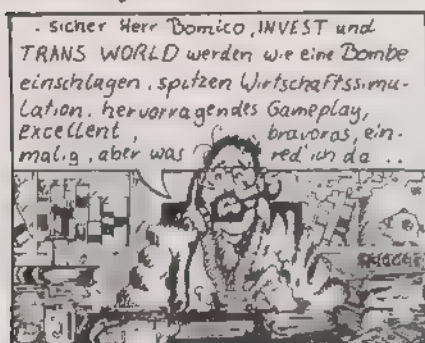 . sicher Herr Domico, INVEST und
TRANS WORLD werden wie eine Bombe
einschlagen, spitzen Wirtschaftssimu-
lation, hervorragendes Gameplay,
excellent, bravorös, ein-
malig, aber was red' ich da ..